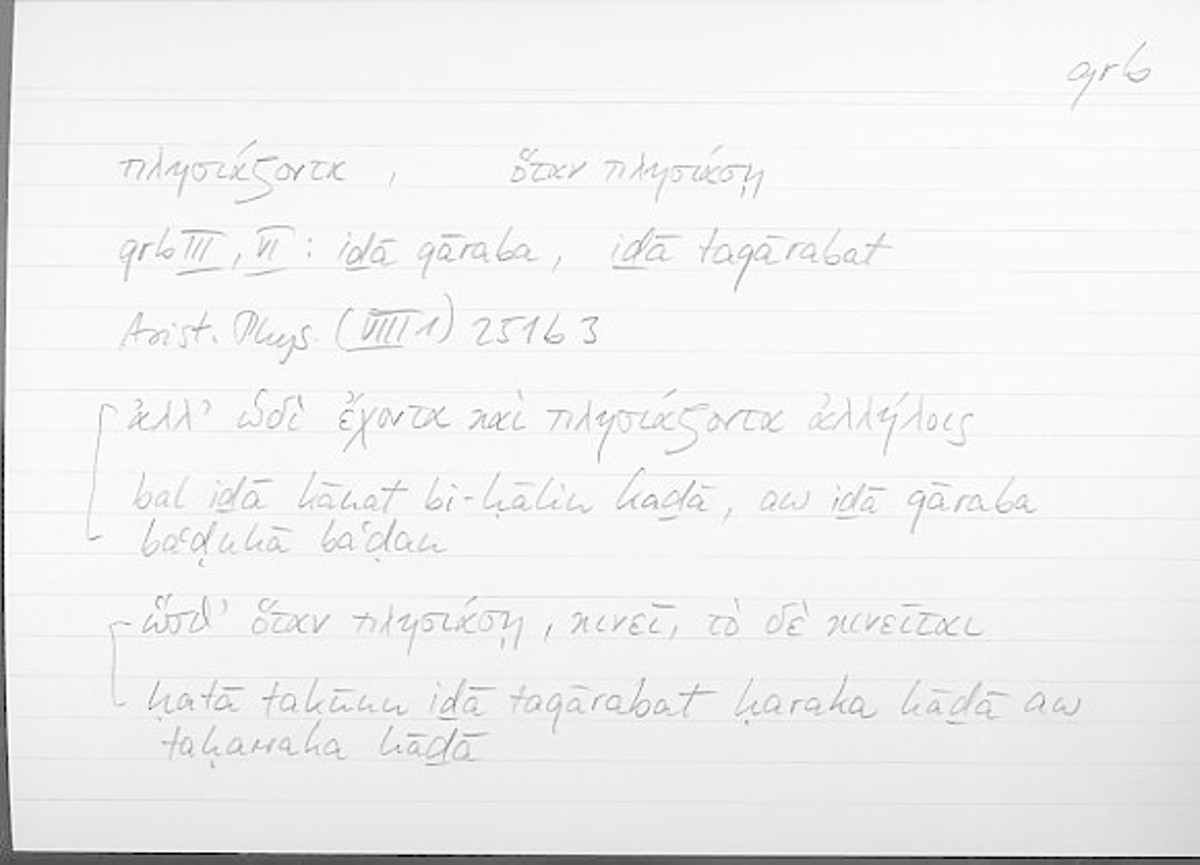 qrb
πλησιάζοντα , ὅταν πλησιάσῃ
qrb III, VI : iḏā qāraba, iḏā taqārabat
Arist. Phys. (VIII 1) 251b3
ἀλλ' ὡδὶ ἔχοντα καὶ πλησιάζοντα ἀλλήλοις
bal iḏā kānat bi-ḥālin kaḏā, aw iḏā qāraba
baʿḍuhā baʿḍan
ὥσθ' ὅταν πλησιάσῃ, κινεῖ, τὸ δὲ κινεῖται
ḥatā takūnu iḏā taqārabat ḥaraka hāḏā aw
taḥarraka hāḏā